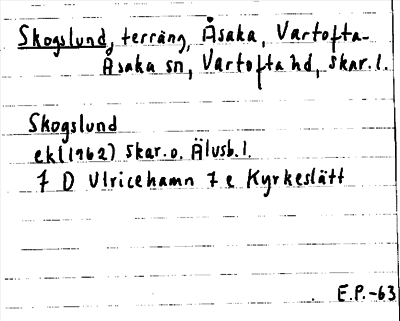 Skogslund, terräng, Åsaka, Vartofta-
Åsaka sn, Vartofta hd, Skar. l.
Skogslund
ekl(1962) Skar. o. Älvsb. l.
7 D Ulricehamn 7 e Kyrkeslätt
E.P.-63